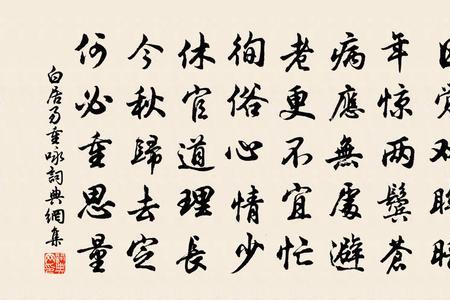 年惊两鬢蒼
病應無處避
老更不宜忙
徇俗心情少
休官道理長
今秋歸去定
何必重思量
白居易重詠詞典網集